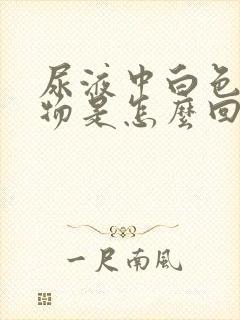 尿液中白色
物是怎麼回
一尺南風